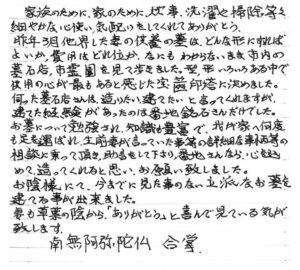 家族のために、家のために、炊事、洗濯と掃除等を
細やかな心使い、気配りをしてくれてありがとう。
昨年3月他界した妻の供養の墓は、どんな形にすれば
よいか、費用はどれ位か、なにもわからないまま市内の
墓石店、市霊園を見て歩きました。型、形いろいろある中で
使用の心が最もあると感じた宝篋印塔に決めました。
何った墓石店さんは、造りたい、建てたいと言ってくれますが、
建てた経験があったのは墓地銘石さんだけでした。
お墓について勉強され、知識も豊富で、我が家へ何度
も足を運ばれ、生前妻が言っていた事等の詳細な事柄等の
相談に乗って頂き、助言をして下さり、墓地さんなら、心を込
めて、造ってくれると思い、お願い致しました。
お陰様にて、今までに見た事のない立派なお墓を
建てる事が出来ました。
妻も草葉の陰から、「ありがとう。」と喜んで見ている気が
致します。
南無阿弥陀仏 合掌